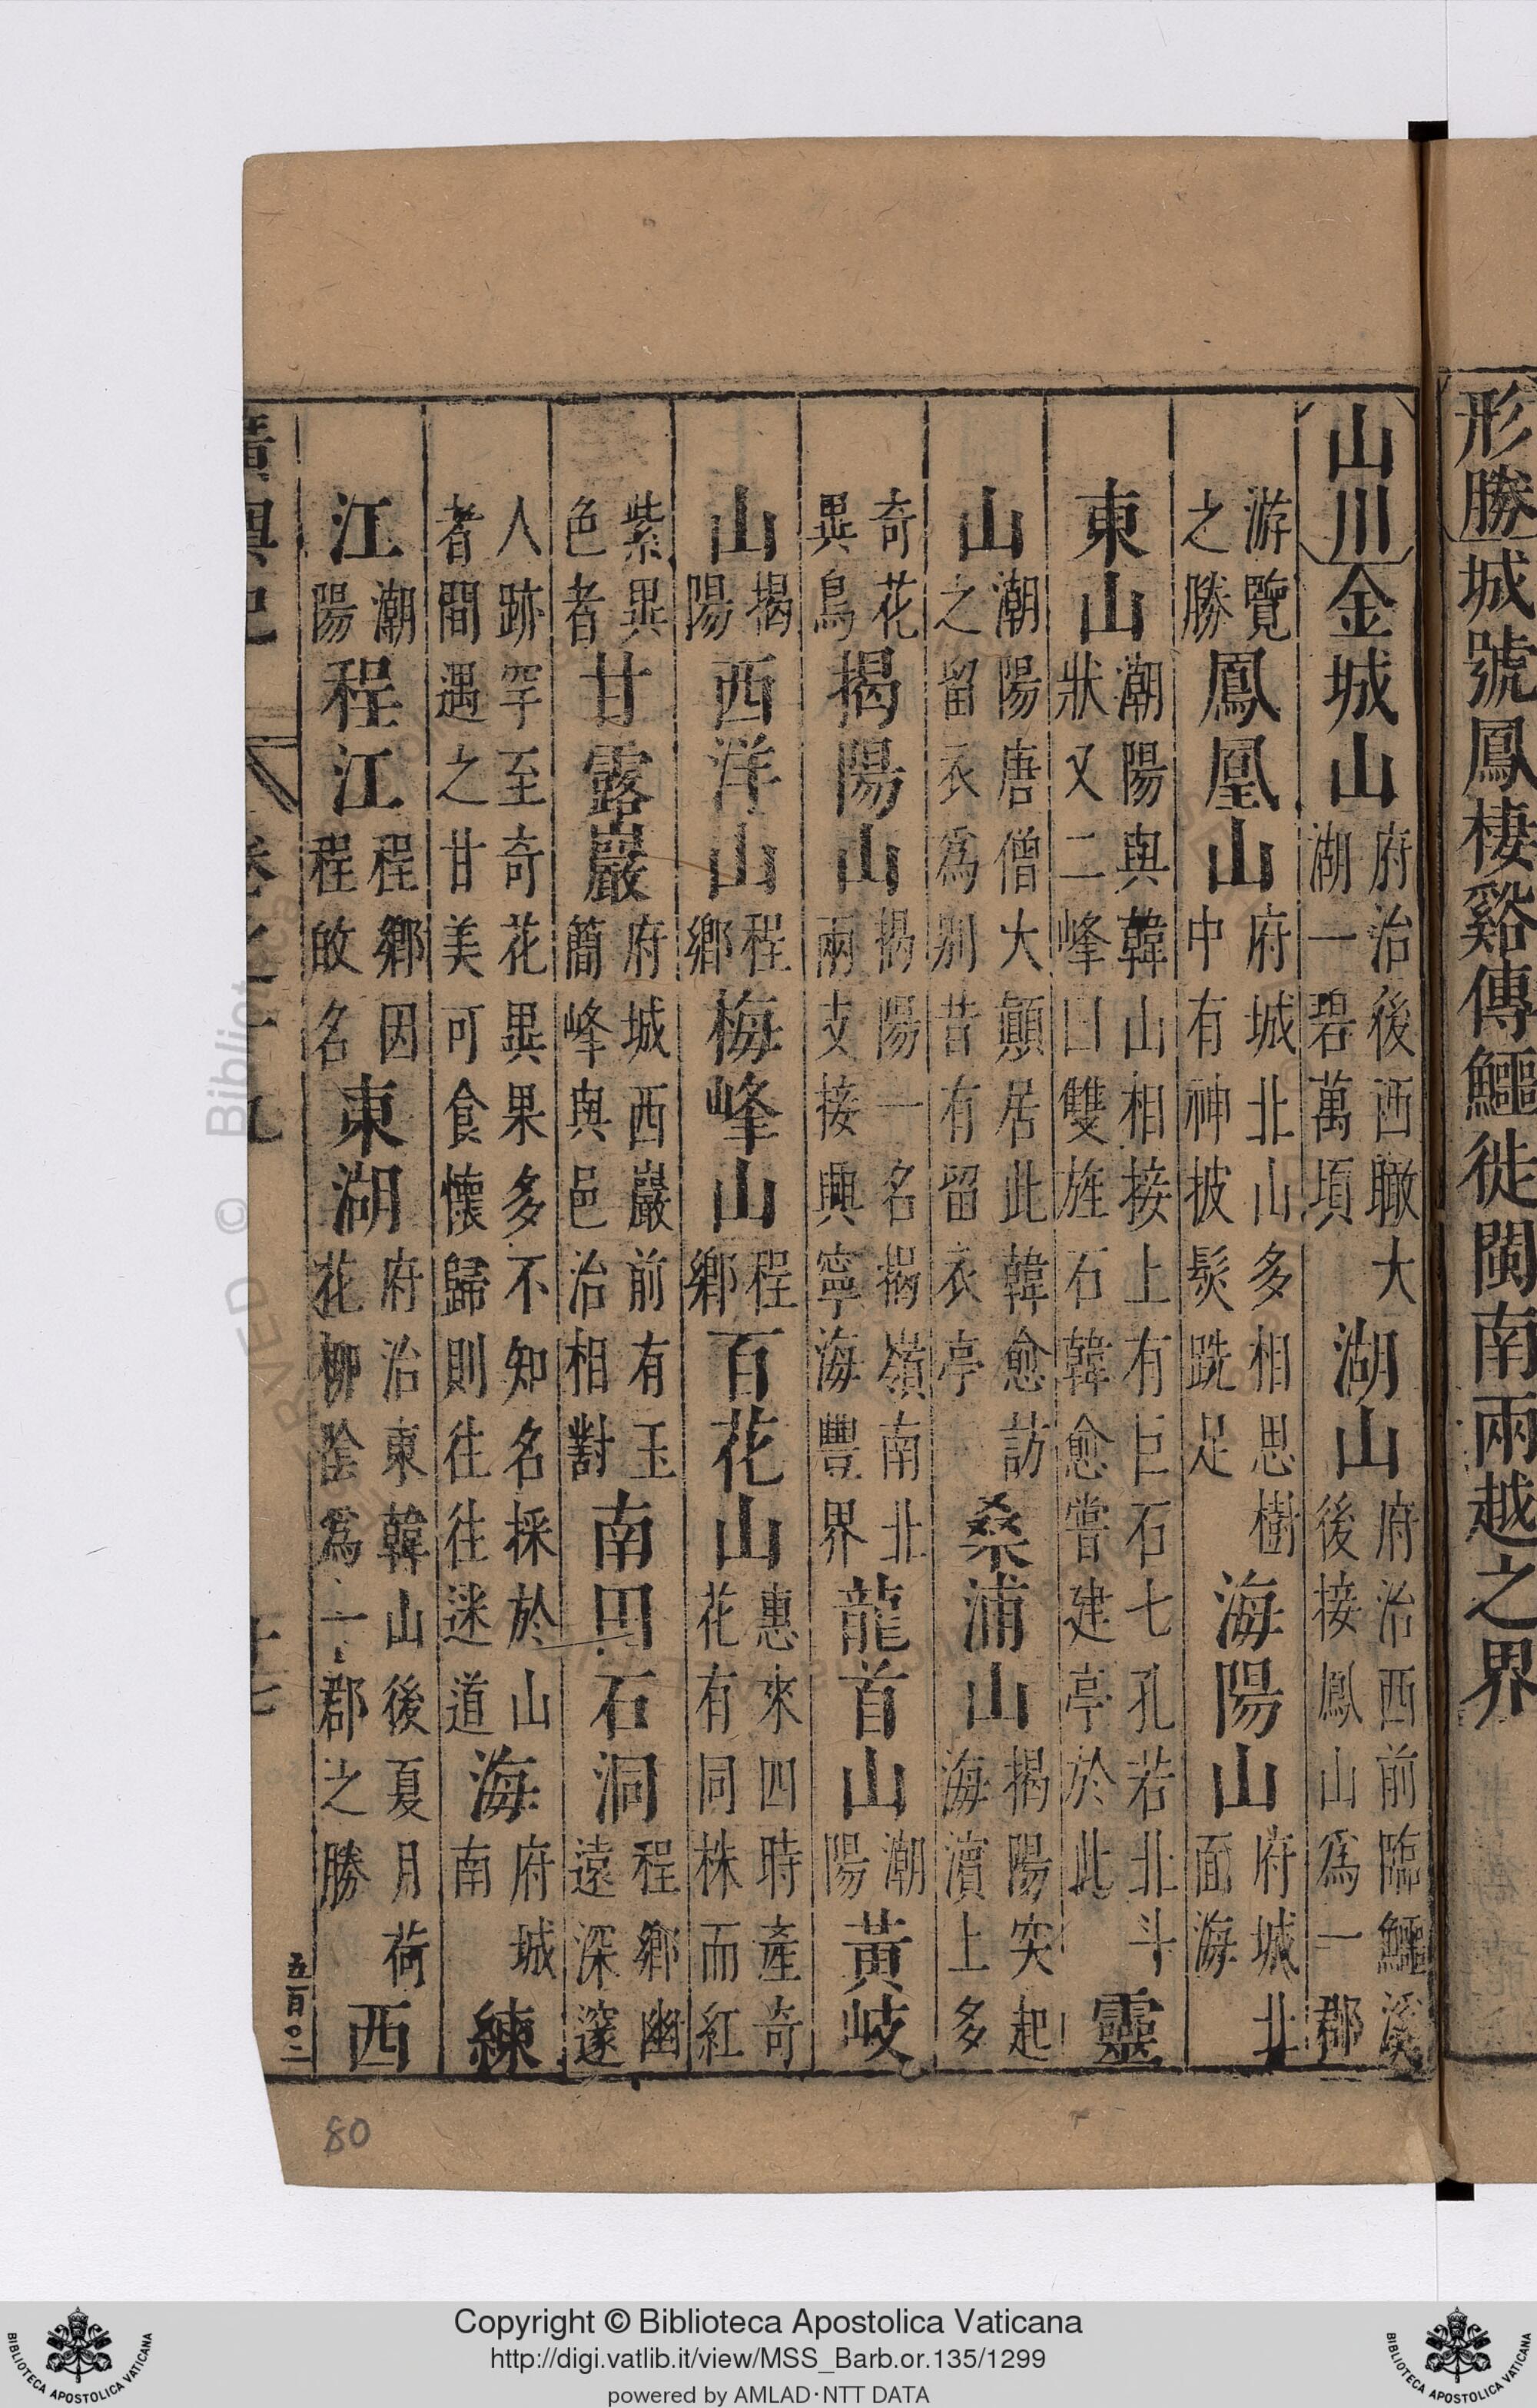 形勝城號鳳棲谿傳鱷徙閩南兩越之界
山川金城山府治後西瞰大湖一碧萬頃湖山府治西前臨鱷溪後接鳳山爲一郡
游覽之勝鳳凰山府城北山多相思樹中有神披髮跣足海陽山府城北面海
東山潮陽與韓山相接上有巨石七孔若北斗狀又二峰曰雙旌石韓愈嘗建亭於此靈
山潮陽唐僧大顛居此韓愈訪之留衣爲別昔有留衣亭桑浦山揭陽突起海濵上多
奇花異鳥揭陽山揭陽一名揭嶺南北兩支接興寧海豐界龍首山潮陽黃岐
山揭陽西洋山程鄉梅峰山程鄉百花山惠來四時產奇花有同株而紅
紫異色者甘露巖府城西巖前有玉簡峰與邑治相對南田石洞程鄉幽遠深邃
人跡罕至奇花異果多不知名採於山者間遇之甘美可食懷歸則往往迷道海府城南練
江潮陽程江程鄉因程旼名東湖府治東韓山後夏月荷花柳陰爲一郡之勝西
五百〇二
80
Copyright © Biblioteca Apostolica Vaticana
http://digi.vatlib.it/view/MSS_Barb.or.135/1299
powered by AMLAD·NTT DATA
BIBLIOTECA APOSTOLICA VATICANA
BIBLIOTECA APOSTOLICA VATICANA